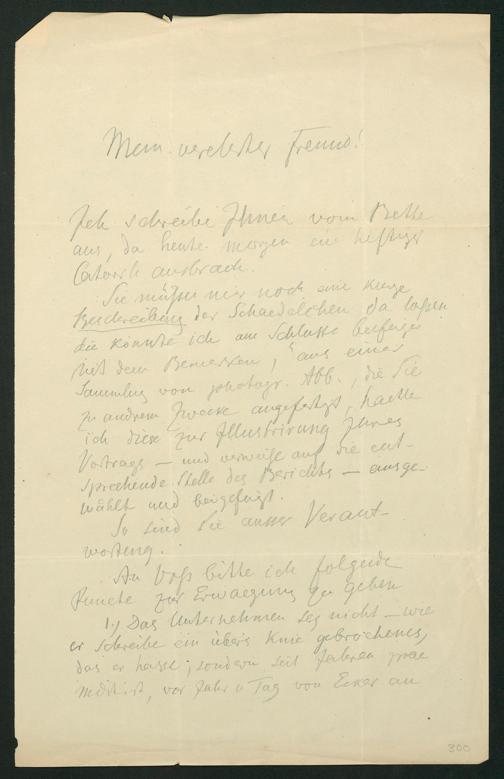 Mein verehrter Freund!
Ich schreibe Ihnen vom Bette
aus, da heute morgen ein heftiger
Catarrh ausbrach.
Sie müssen mir noch eine kurze
Beschreibung der Schaedelchen da lassen
die könnte ich am Schlusse beifügen
mit dem Bemerken, "aus einer
Sammlung von photogr. Abb., die Sie
zu andrem Zwecke angefertigt, haette
ich diese zur Illustrirung Ihres
Vortrags — und verweise auf die ent-
sprechende Stelle des Berichts — ausge-
wählt und beigefügt.
So sind Sie ausser Verant-
wortung.
An Voss bitte ich folgende
Puncte zur Erwaegung zu geben
1.) Das Unternehmen sey nicht — wie
er schreibe ein übers Knie gebrochenes,
das er hasse; sondern seit Jahren prae
meditirt, vor Jahr u Tag von Ecker an
300